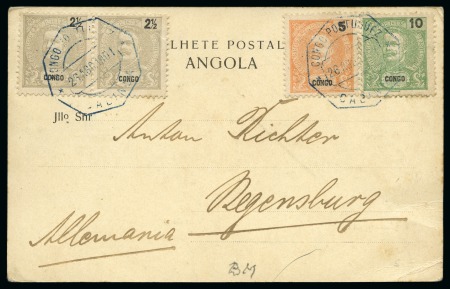 2½ 2½ 5 10
CONGO CONGO CONGO CONGO
LHETE POSTAL
ANGOLA
Jllo Snr
Anton Richter
Regensburg
Allemania